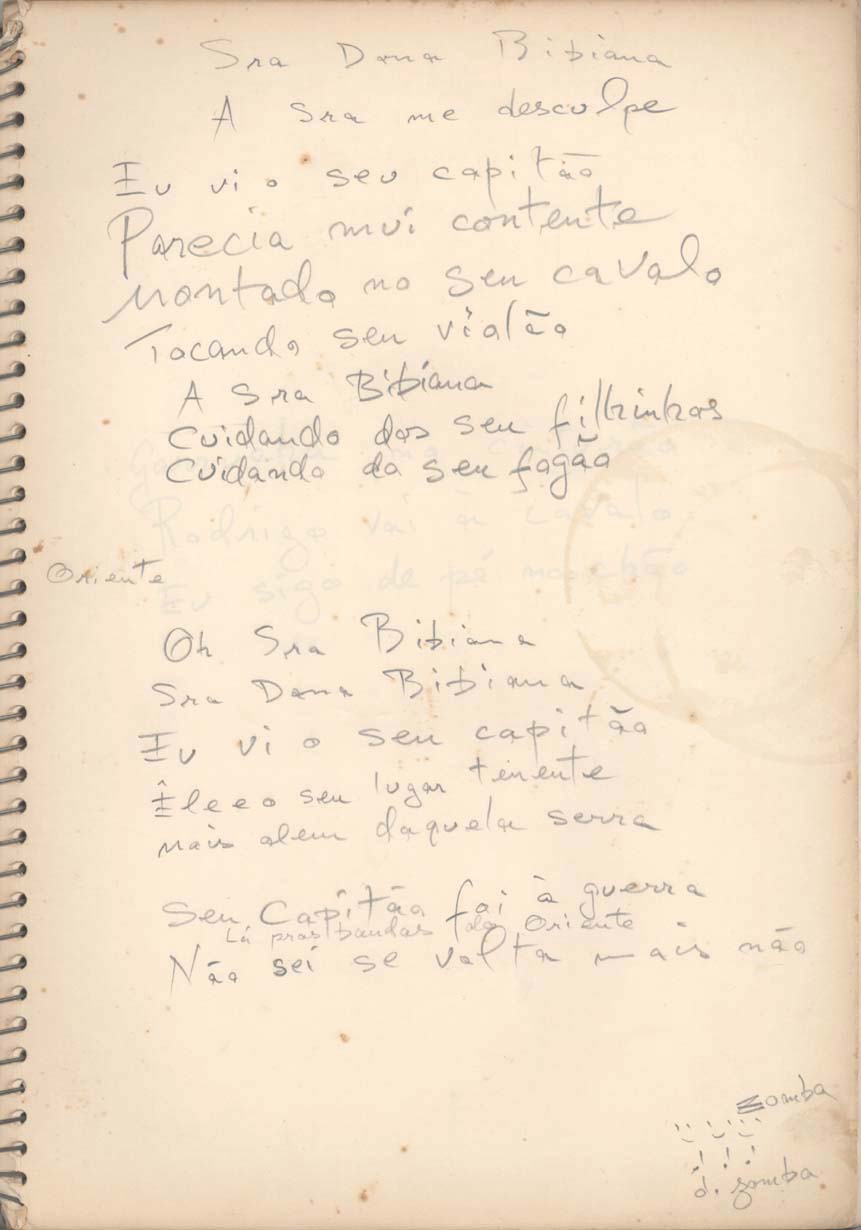 Sra Dona Bibiana
A Sra me desculpe
Eu vi o seu capitão
Parecia mui contente
Montado no seu cavalo
Tocando seu violão
A Sra Bibiana
Cuidando dos seu filhinhos
Cuidando do seu fogão
Rodrigo vai à cavalo
Eu sigo de pé no chão
Oriente
Oh Sra Bibiana
Sra Dona Bibiana
Eu vi o seu capitão
Êle e o seu lugar tenente
mais alem daquela serra
Seu Capitão foi à guerra
Lá pras bandas do Oriente
Não sei se volta mais não
zomba
d. zomba